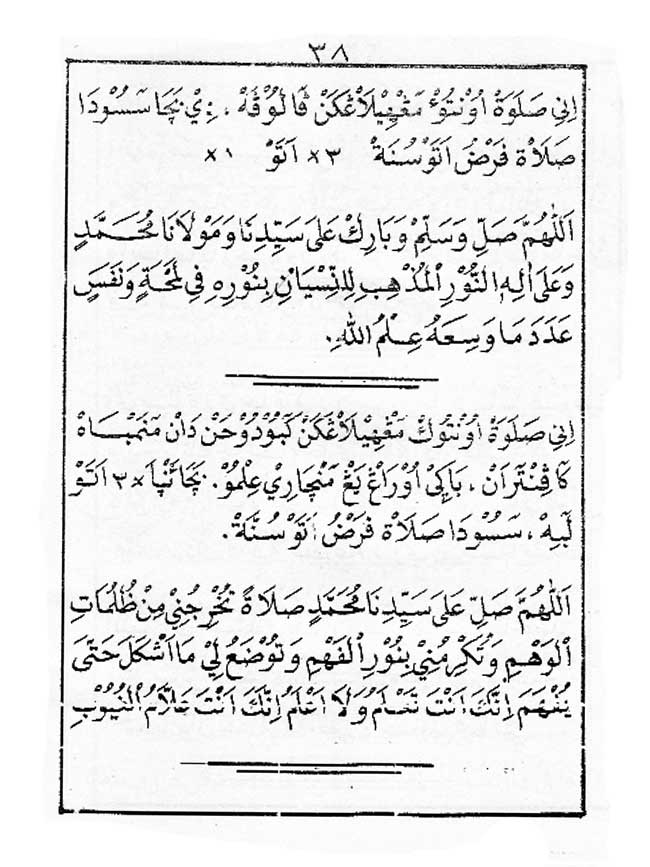 ٣٨
اِنِي صَلَوَةْ اُوْنْتُوْءْ مَڠْهِيْلَاڠْكَنْ ڤَالُوْڤَهْ ، دِيْ بَچَا سَسُوْدَا
صَلَاةْ فَرَضْ اَتَوْ سُنَةْ ٣× اَتَوْ ١×
اَللّٰهُمَّ صَلِّ وَسَلِّمْ وَبَارِكْ عَلَى سَيِّدِنَا وَمَوْلَانَا مُحَمَّدٍ
وَعَلَى اٰلِهِ النُّوْرِ الْمُذْهِبِ لِلنِّسْيَانِ بِنُوْرِهِ فِي لَمْحَةٍ وَنَفَسٍ
عَدَدَ مَا وَسِعَهُ عِلْمُ اللّٰهِ.
اِنِي صَلَوَةْ اُوْنْتُوْكْ مَڠْهِيْلَاڠْكَنْ كَبُوْدُوْحَنْ دَانْ مَنَمْبَاهْ
كَاڤِنْتَرَانْ ، بَاكِيْ اُوْرَاڠْ يَڠْ مَنْچَارِيْ عِلْمُوْ. بَچَائَنْيَا ×٣ اَتَوْ
لَبِهْ ، سَسُوْدَا صَلَاةْ فَرَضْ اَتَوْ سُنَّةْ.
اَللّٰهُمَّ صَلِّ عَلَى سَيِّدِنَا مُحَمَّدٍ صَلَاةً تُخْرِجُنِيْ مِنْ ظُلُمَاتِ
الْوَهْمِ وَتُكْرِمُنِيْ بِنُوْرِ الْفَهْمِ وَتُوْضَعُ لِيْ مَا اَشْكَلَ حَتَّى
يُفْهَمَ اِنَّكَ اَنْتَ تَعْلَمُ وَلَا اَعْلَمُ اِنَّكَ اَنْتَ عَلَّامُ الْغُيُوْبِ